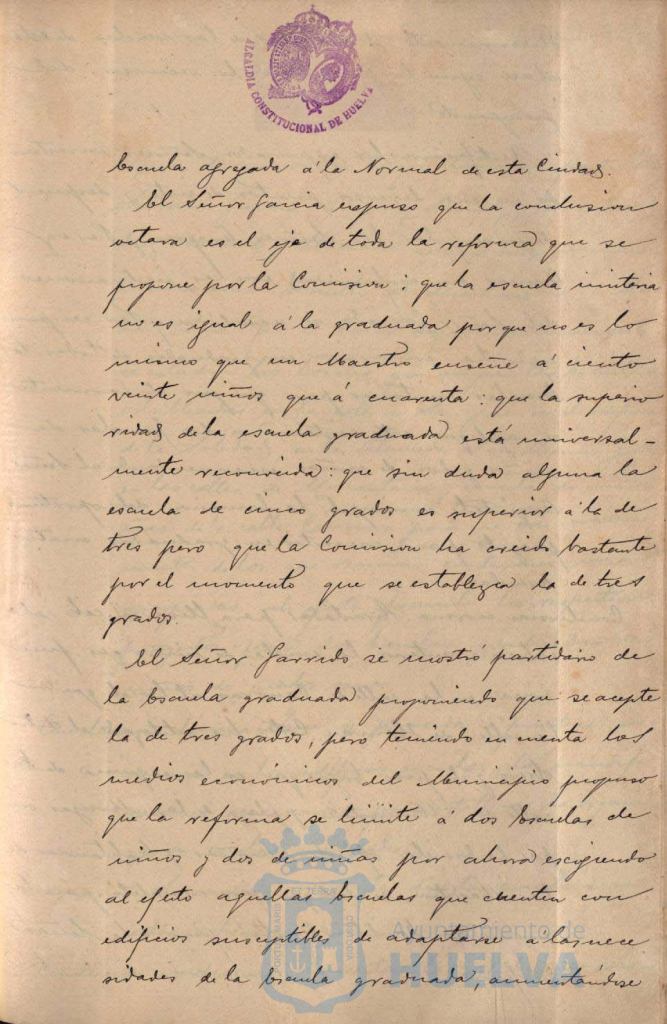 ALCALDIA CONSTITUCIONAL DE HUELVA
Escuela agregada á la Normal de esta Ciudad.
El Señor Garcia expuso que la conclusion
octava es el eje de toda la reforma que se
propone por la Comision; que la escuela unitaria
no es igual á la graduada porque no es lo
mismo que un Maestro enseñe á ciento
veinte niños que á cuarenta: que la superio
ridad de la escuela graduada está universal-
mente reconocida: que sin duda alguna la
escuela de cinco grados es superior á la de
tres pero que la Comision ha creido bastante
por el momento que se establezca la de tres
grados.
El Señor Garrido se mostró partidario de
la Escuela graduada proponiendo que se acepte
la de tres grados, pero teniendo en cuenta los
medios económicos del Municipio propuso
que la reforma se limite á dos Escuelas de
niños y dos de niñas por ahora escogiendo
al efecto aquellas Escuelas que cuenten con
edificios susceptibles de adaptarse a las nece
sidades de la Escuela graduada, aumentándose
Ayuntamiento de
HUELVA